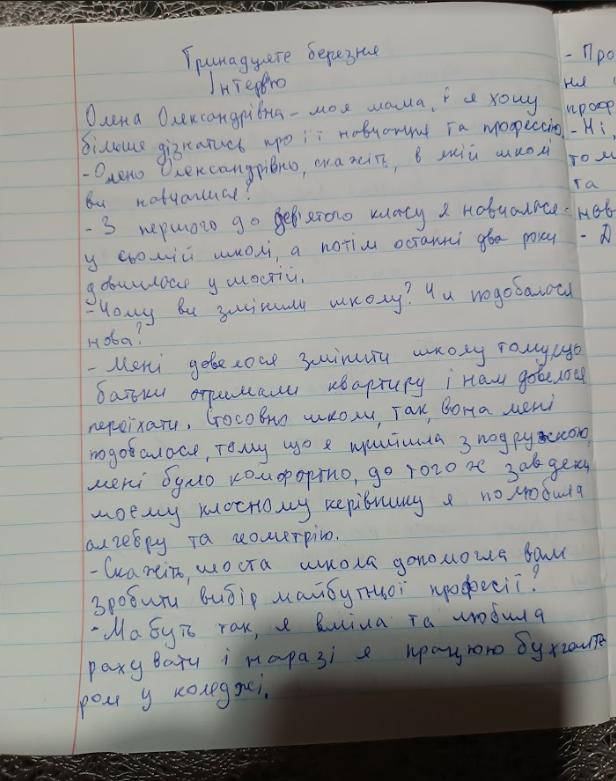 Тринадцяте березня
Інтервю
Олена Олександрівна - моя мама, і я хочу
більше дізнатись про її навчання та професію.
- Олено Олександрівно, скажіть, в якій школі
ви навчалися?
- З першого до дев'ятого класу я навчалася
у сьомій школі, а потім останні два роки
довчилася у шостій.
- Чому ви змінили школу? Чи подобалася
нова?
- Мені довелося змінити школу тому, що
батьки отримали квартиру і нам довелося
переїхати. Стосовно школи, так, вона мені
подобалася, тому що я прийшла з подружкою,
мені було комфортно, до того ж завдяки
моєму класному керівнику я полюбила
алгебру та геометрію.
- Скажіть, шоста школа допомогла вам
зробити вибір майбутньої професії?
- Мабуть так, я вміла та любила
рахувати і наразі я працюю бухгалте
ром у коледжі.
- Про
ня
проф
- Ні,
том
та
нав
- Д